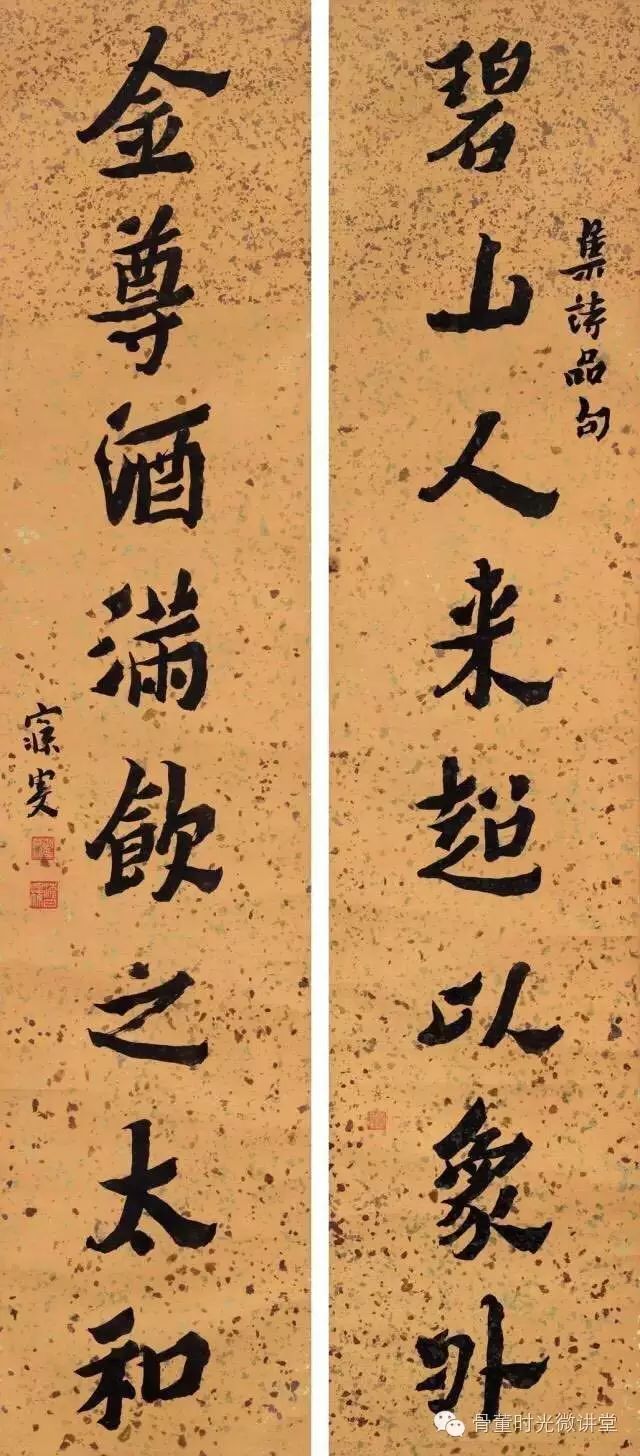 集詩品句
碧山人来超以象外
金尊酒滿飲之太和
寐叟
骨董时光微讲堂